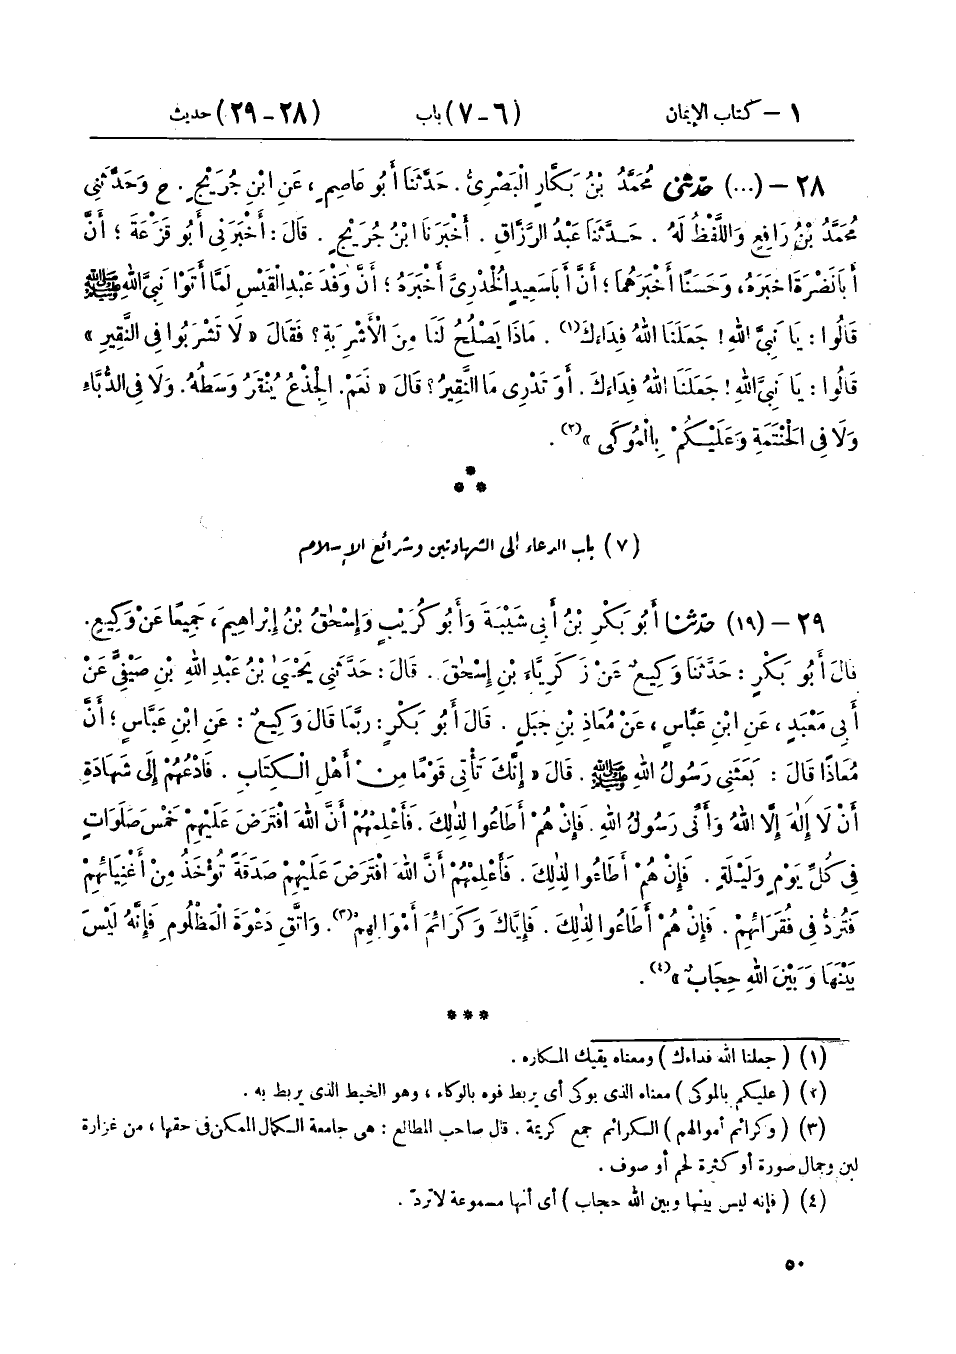 ١ – كتاب الإيمان (٦ – ٧) باب (٢٨ – ٢٩) حديث
٢٨ – (...) حَدَّثَنِي مُحَمَّدُ بْنُ بَكَّارٍ الْبَصْرِيُّ . حَدَّثَنَا أَبُو عَاصِمٍ ، عَنِ ابْنِ جُرَيْجٍ . ح وَحَدَّثَنِي
مُحَمَّدُ بْنُ رَافِعٍ وَاللَّفْظُ لَهُ . حَدَّثَنَا عَبْدُ الرَّزَّاقِ . أَخْبَرَنَا ابْنُ جُرَيْجٍ . قَالَ : أَخْبَرَنِي أَبُو قَزَعَةَ ؛ أَنَّ
أَبَا نَضْرَةَ اخبَرَهُ ، وَحَسَنًا أَخْبَرَهُمَا ؛ أَنَّ أَبَا سَعِيدٍ الْخُدْرِىَّ أَخْبَرَهُ ؛ أَنَّ وَفْدَ عَبْدِ الْقَيْسِ لَمَّا أَتَوْا نَبِيَّ اللهِ ﷺ
قَالُوا : يَا نَبِيَّ اللهِ ! جَعَلَنَا اللهُ فِدَاءَكَ(١) . مَاذَا يَصْلُحُ لَنَا مِنَ الْأَشْرِبَةِ ؟ فَقَالَ « لَا تَشْرَبُوا فِي النَّقِيرِ »
قَالُوا : يَا نَبِيَّ اللهِ ! جَعَلَنَا اللهُ فِدَاءَكَ . أَوَ تَدْرِى مَا النَّقِيرُ ؟ قَالَ « نَعَمْ . الْجِذْعُ يُنْقَرُ وَسَطُهُ . وَلَا فِي الدُّبَّاءِ
وَلَا فِي الْحَنْتَمَةِ وَعَلَيْكُمْ بِالْمُوكَى »(٢) .
(٧) باب الدعاء إلى الشهادتين وشرائع الإسلام
٢٩ – (١٩) حَدَّثَنَا أَبُو بَكْرِ بْنُ أَبِي شَيْبَةَ وَأَبُو كُرَيْبٍ وَإِسْحَقُ بْنُ إِبْرَاهِيمَ ، جَمِيعًا عَنْ وَكِيعٍ .
قَالَ أَبُو بَكْرٍ : حَدَّثَنَا وَكِيعٌ عَنْ زَكَرِيَّاءَ بْنِ إِسْحَقَ . قَالَ : حَدَّثَنِي يَحْيَىٰ بْنُ عَبْدِ اللهِ بْنِ صَيْفِيٍّ عَنْ
أَبِي مَعْبَدٍ ، عَنِ ابْنِ عَبَّاسٍ ، عَنْ مُعَاذِ بْنِ جَبَلٍ . قَالَ أَبُو بَكْرٍ : رُبَّمَا قَالَ وَكِيعٌ : عَنِ ابْنِ عَبَّاسٍ ؛ أَنَّ
مُعَاذًا قَالَ : بَعَثَنِي رَسُولُ اللهِ ﷺ . قَالَ « إِنَّكَ تَأْتِي قَوْمًا مِنْ أَهْلِ الْكِتَابِ . فَادْعُهُمْ إِلَى شَهَادَةِ
أَنْ لَا إِلَهَ إِلَّا اللهُ وَأَنِّي رَسُولُ اللهِ . فَإِنْ هُمْ أَطَاعُوا لِذَٰلِكَ . فَأَعْلِمْهُمْ أَنَّ اللهَ افْتَرَضَ عَلَيْهِمْ خَمْسَ صَلَوَاتٍ
فِي كُلِّ يَوْمٍ وَلَيْلَةٍ . فَإِنْ هُمْ أَطَاعُوا لِذَٰلِكَ . فَأَعْلِمْهُمْ أَنَّ اللهَ افْتَرَضَ عَلَيْهِمْ صَدَقَةً تُؤْخَذُ مِنْ أَغْنِيَائِهِمْ
فَتُرَدُّ فِي فُقَرَائِهِمْ . فَإِنْ هُمْ أَطَاعُوا لِذَٰلِكَ . فَإِيَّاكَ وَكَرَائِمَ أَمْوَالِهِمْ(٣) . وَاتَّقِ دَعْوَةَ الْمَظْلُومِ فَإِنَّهُ لَيْسَ
بَيْنَهَا وَبَيْنَ اللهِ حِجَابٌ »(٤) .
(١) ( جعلنا الله فداءك ) ومعناه يقيك المكاره .
(٢) ( عليكم بالموكى ) معناه الذى يوكى أى يربط فوه بالوكاء ، وهو الخيط الذى يربط به .
(٣) ( وكرائم أموالهم ) الكرائم جمع كريمة . قال صاحب المطالع : هى جامعة الكمال الممكن فى حقها ، من غزارة
لبن وجمال صورة أو كثرة لحم أو صوف .
(٤) ( فإنه ليس بينها وبين الله حجاب ) أى أنها مسموعة لا تردّ .
٥٠